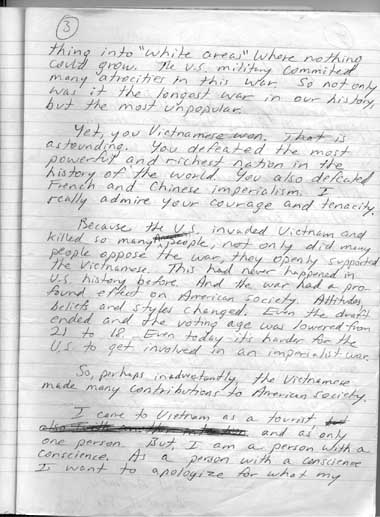 3
thing into "white areas" where nothing
could grow. The U.S. military commited
many atrocities in this war. So not only
was it the longest war in our history,
but the most unpopular.
Yet, you Vietnamese won. That is
astounding. You defeated the most
powerful and richest nation in the
history of the world. You also defeated
French and Chinese imperialism. I
really admire your courage and tenacity.
Because the U.S. invaded Vietnam and
killed so many people, not only did many
people oppose the war, they openly supported
the Vietnamese. This had never happened in
U.S. history before. And the war had a pro-
found effect on American society. Attitudes
beliefs and styles changed. Even the draft
ended and the voting age was lowered from
21 to 18. Even today its harder for the
U.S. to get involved in an imperialist war.
So, perhaps inadvertantly, the Vietnamese
made many contributions to American society.
I came to Vietnam as a tourist,
and as only
one person. But, I am a person with a
conscience. As a person with a conscience
I want to apologize for what my